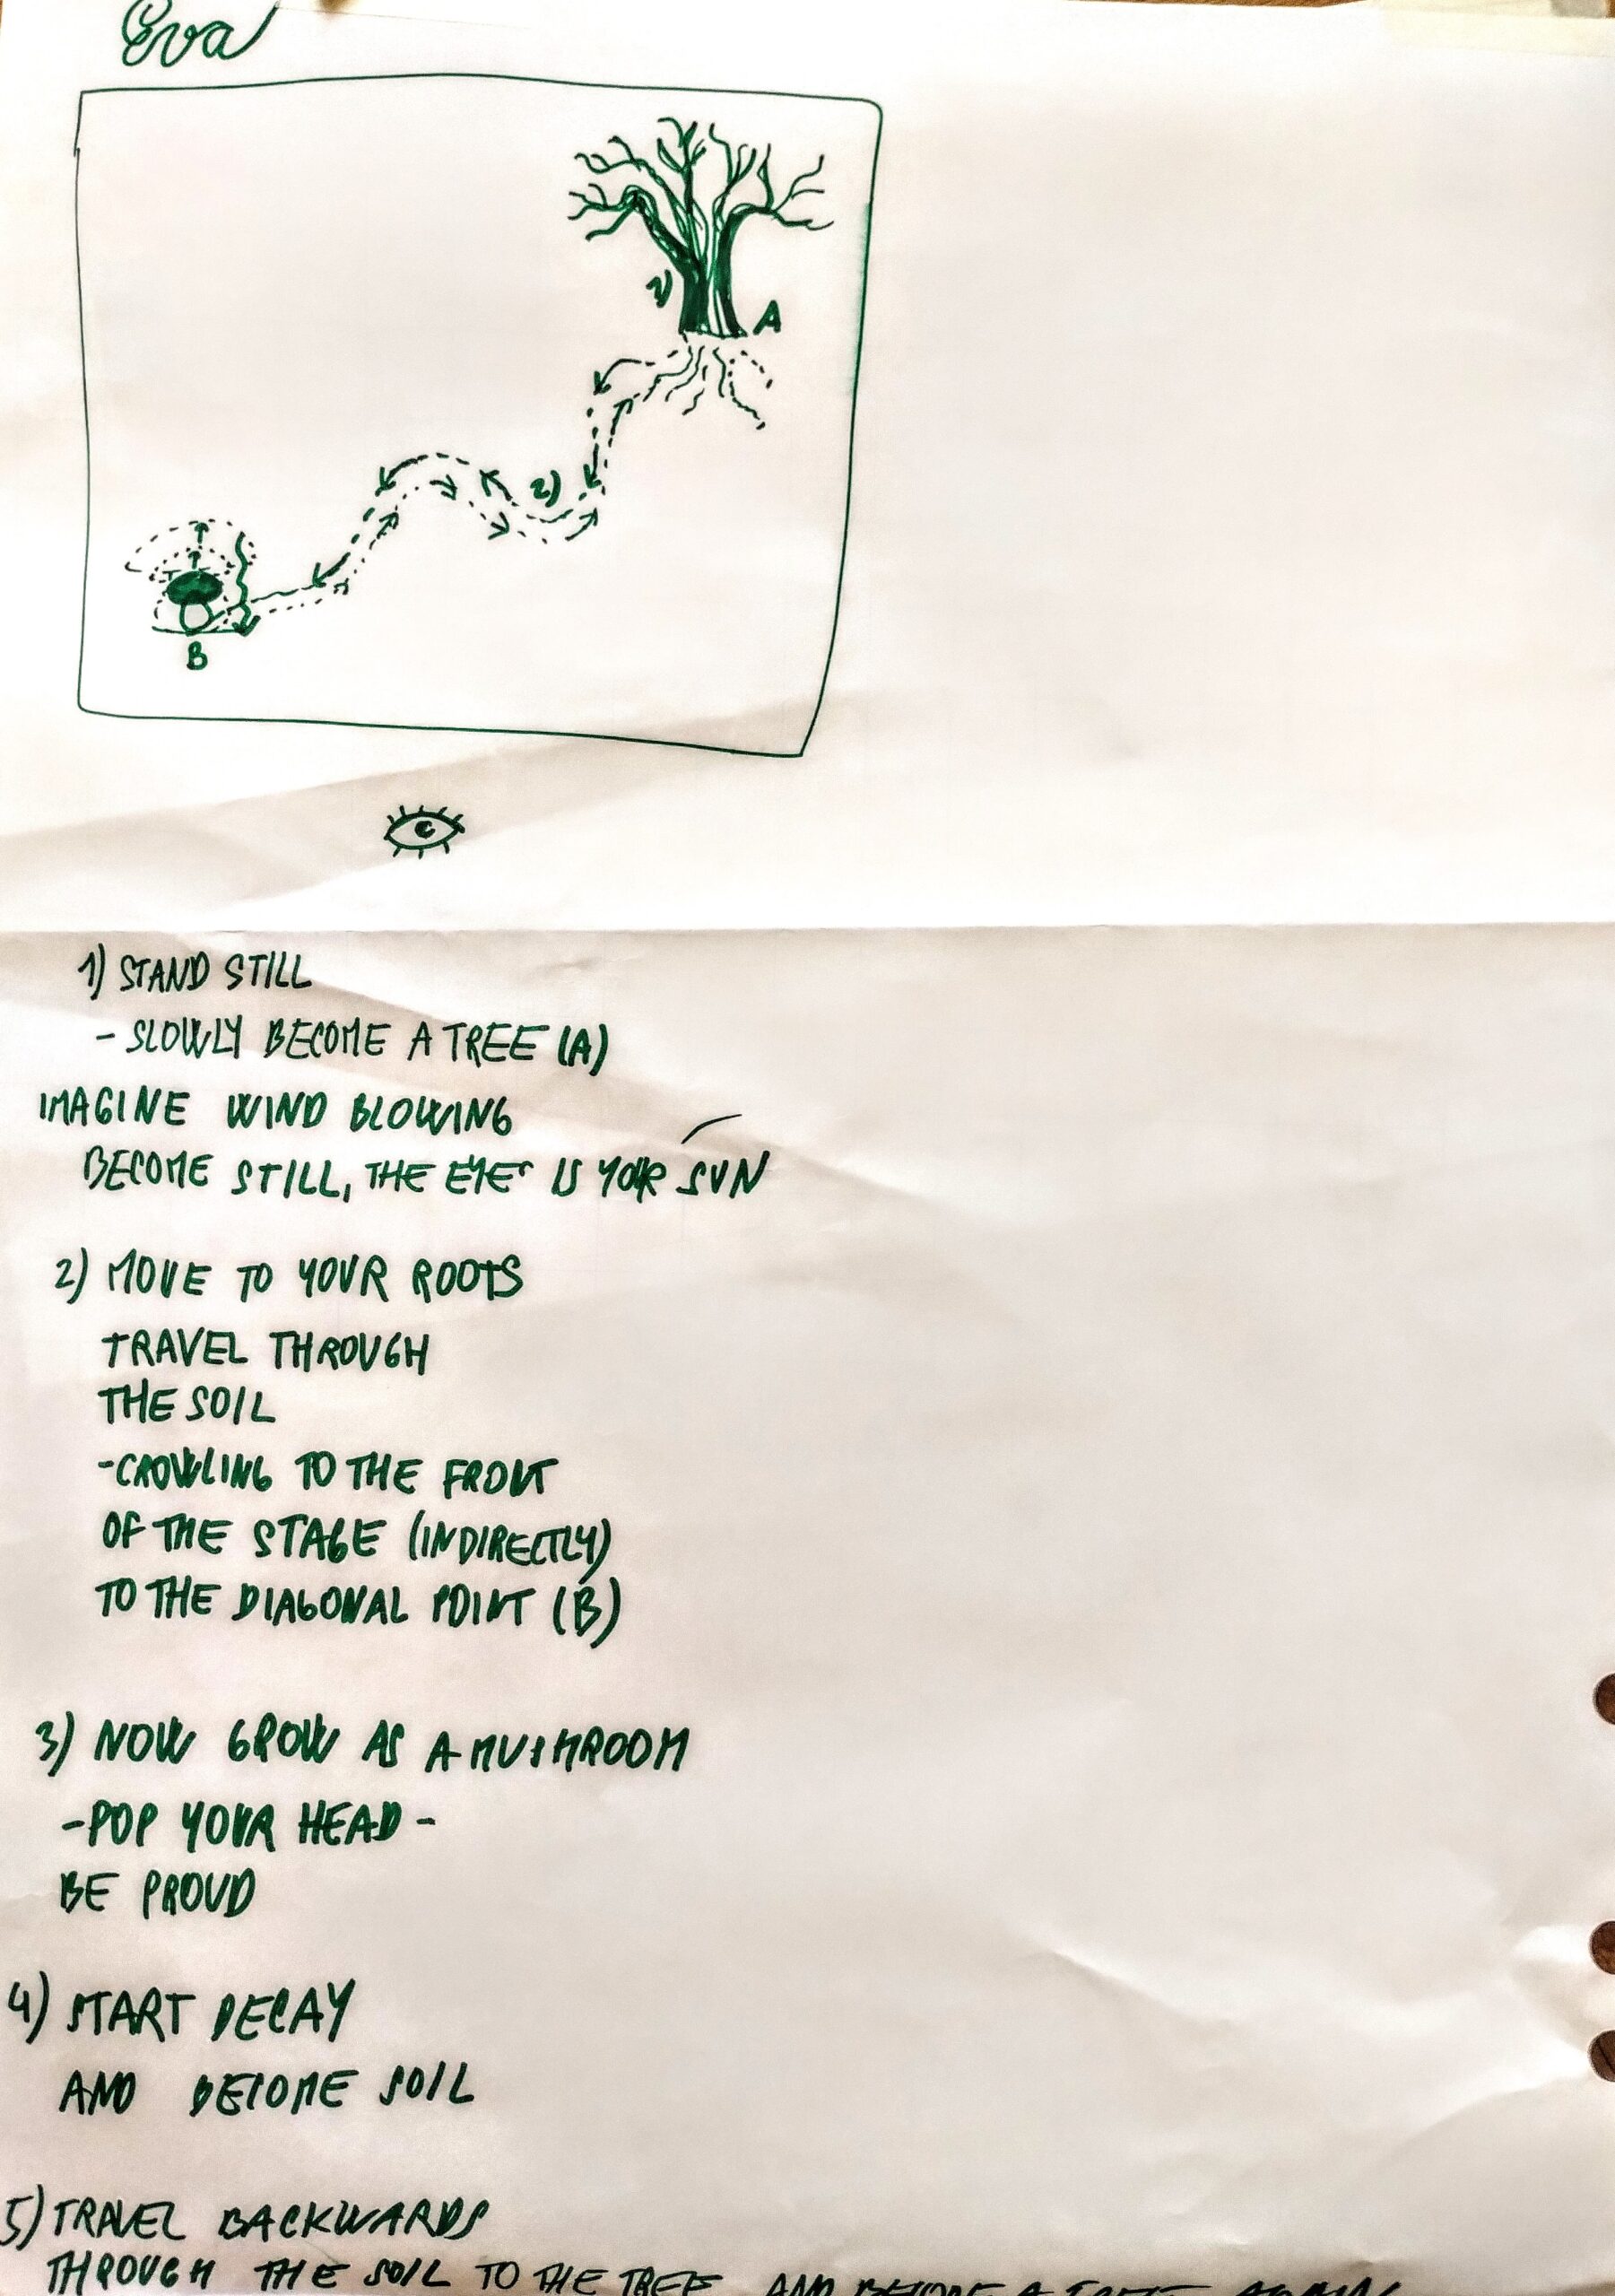 Eva
1)
A
2)
B
1) STAND STILL
- SLOWLY BECOME A TREE (A)
IMAGINE WIND BLOWING
BECOME STILL, THE EYE IS YOUR SUN
2) MOVE TO YOUR ROOTS
TRAVEL THROUGH
THE SOIL
- CROWLING TO THE FRONT
OF THE STAGE (INDIRECTLY)
TO THE DIAGONAL POINT (B)
3) NOW GROW AS A MUSHROOM
- POP YOUR HEAD -
BE PROUD
4) START DECAY
AND BECOME SOIL
5) TRAVEL BACKWARDS
THROUGH THE SOIL TO THE TREE AND BECOME A TREE AGAIN